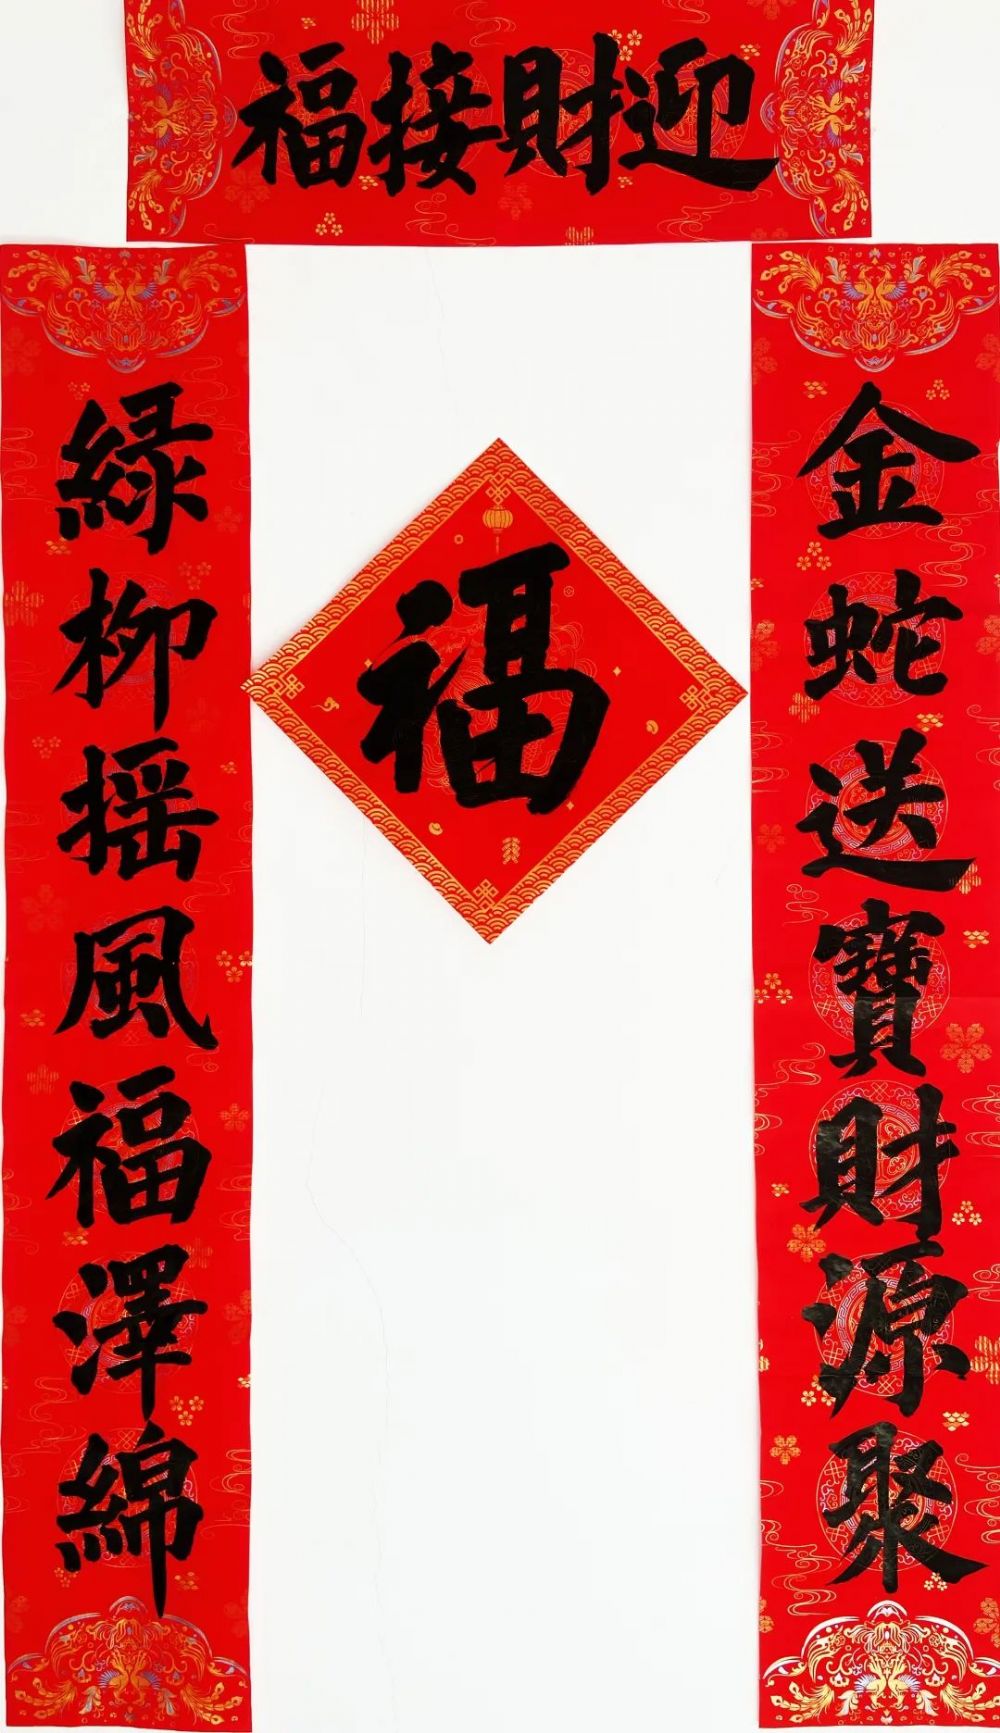 迎財接福
金蛇送寶財源聚
緑柳搖風福澤綿
福